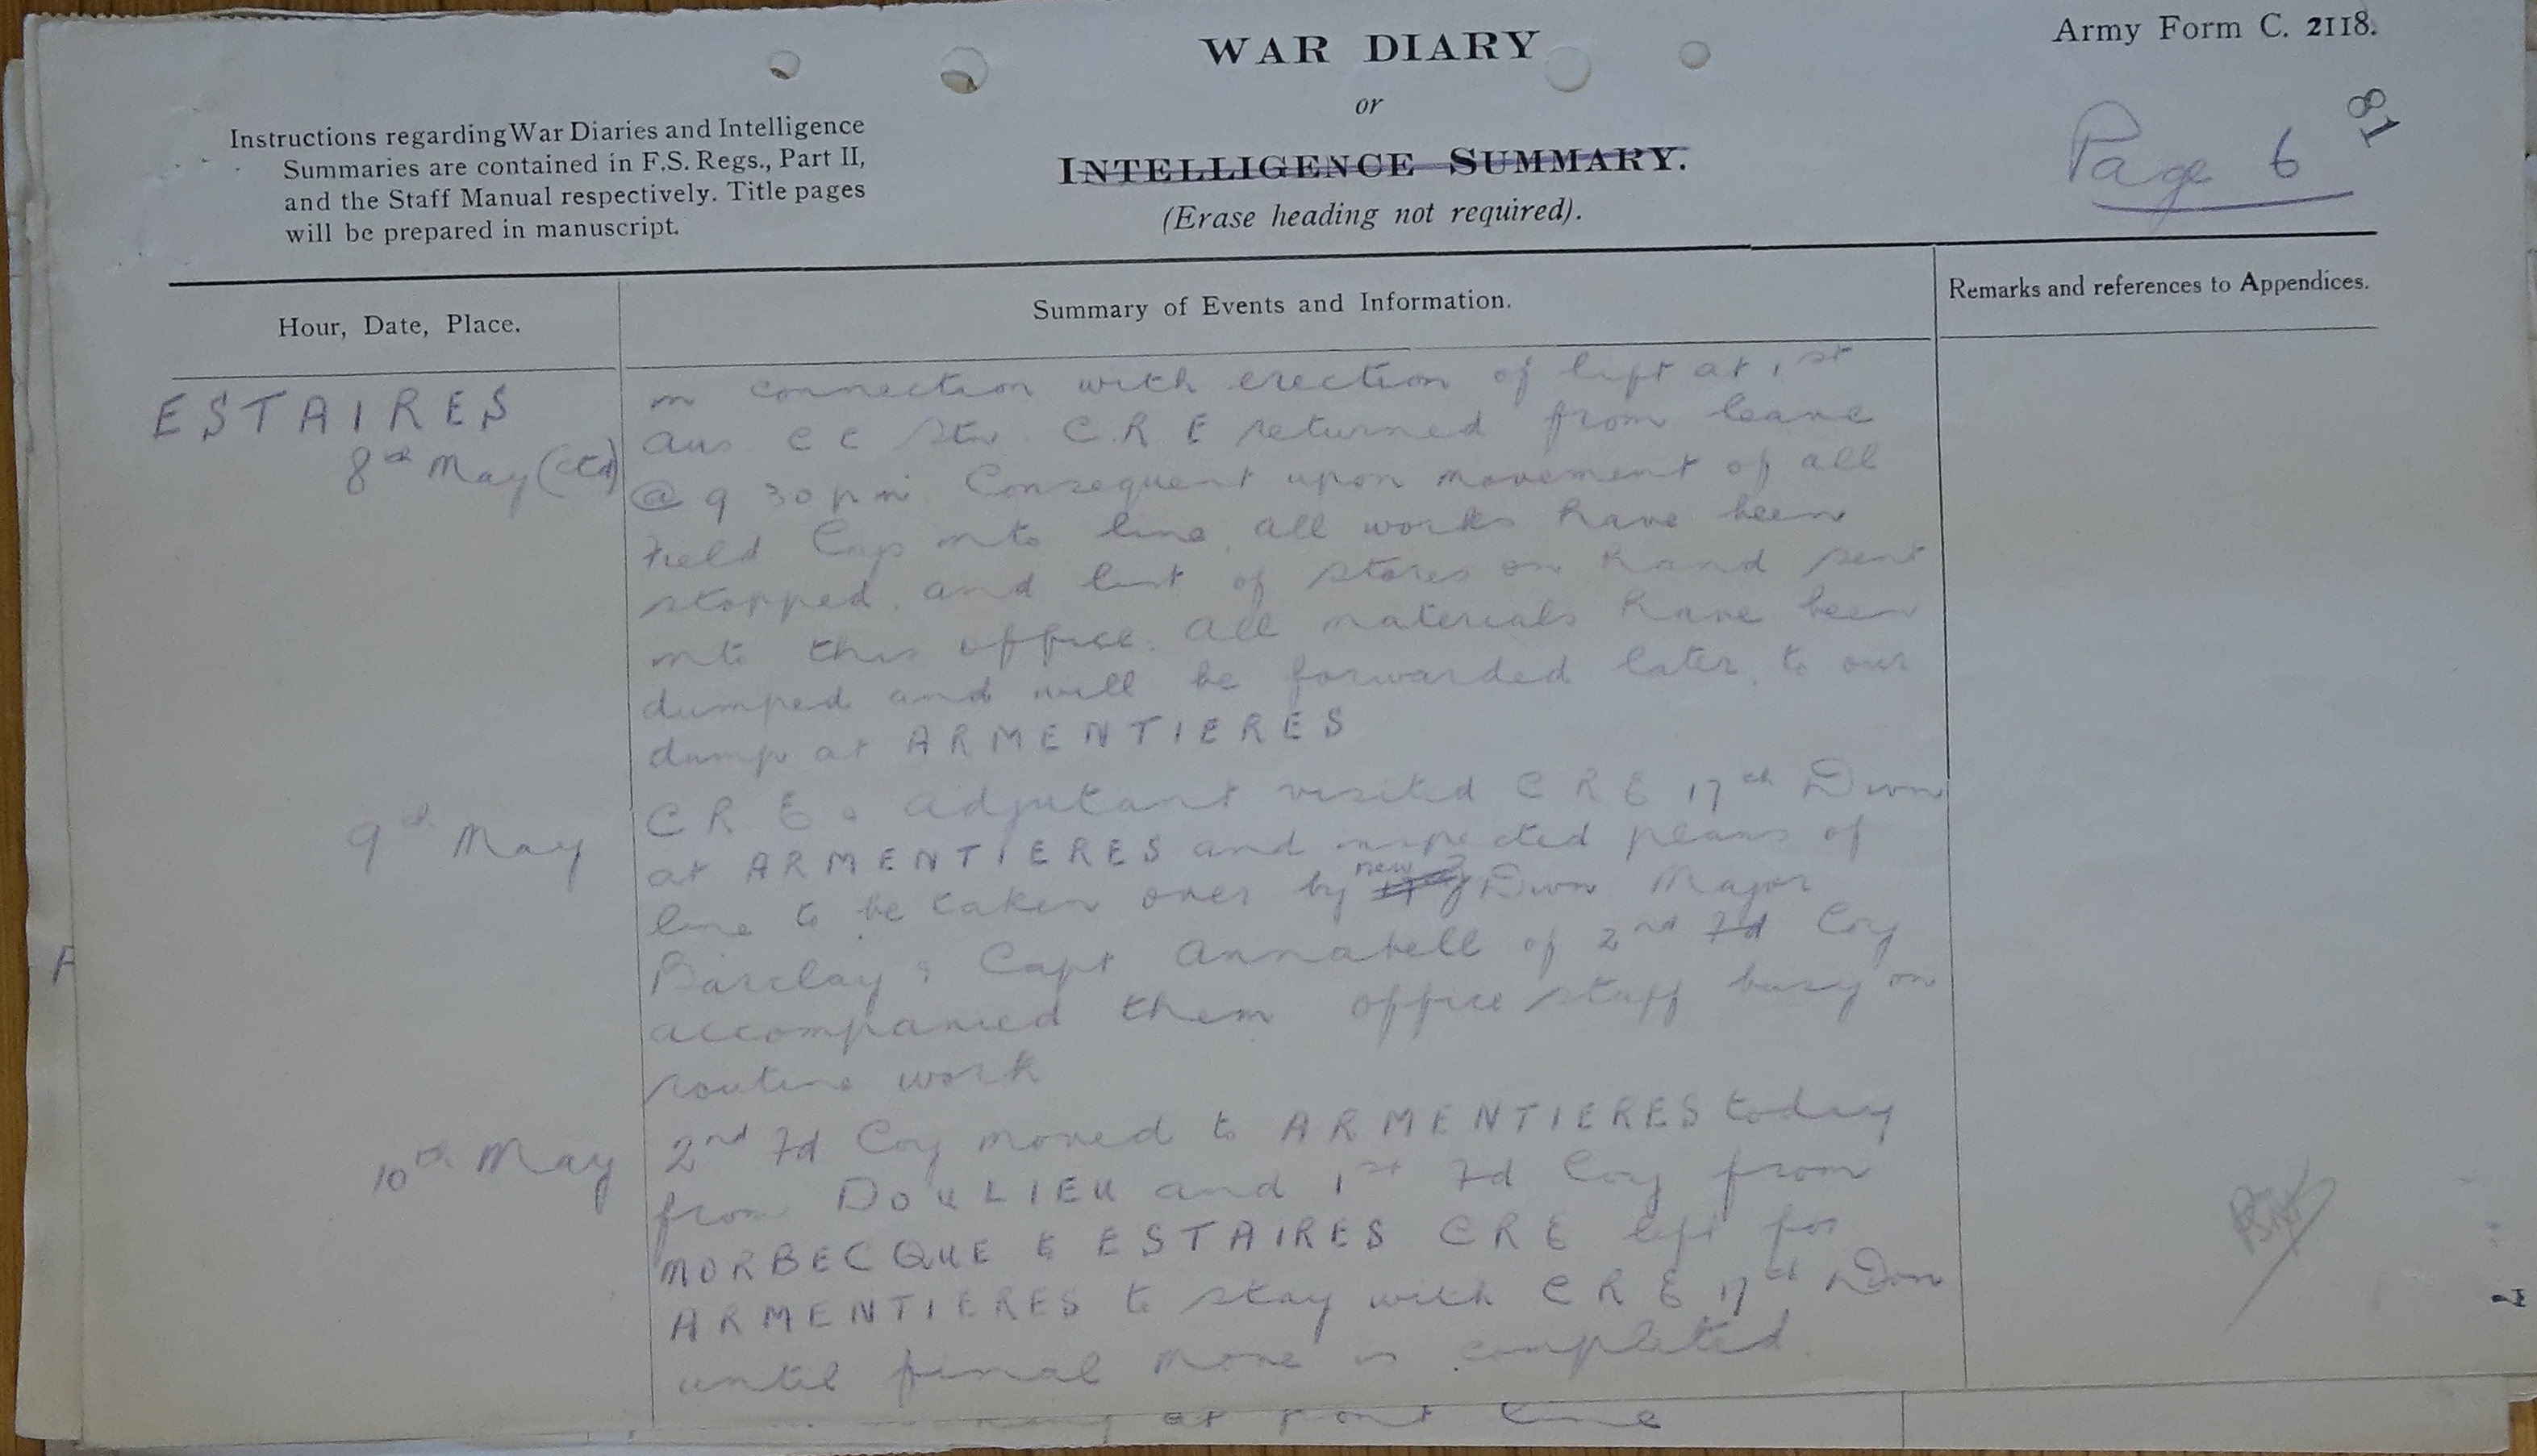 Army Form C. 2118.
WAR DIARY
or
INTELLIGENCE SUMMARY.
(Erase heading not required).
Instructions regarding War Diaries and Intelligence
Summaries are contained in F.S. Regs., Part II,
and the Staff Manual respectively. Title pages
will be prepared in manuscript.
Page 6
81
Hour, Date, Place.
Summary of Events and Information.
Remarks and references to Appendices.
ESTAIRES
8th May (ctd)
in connection with erection of lift at 1st
Aus C C Stn. C.R.E returned from leave
@ 9 30 pm. Consequent upon movement of all
Field Coys into line, all works have been
stopped, and list of stores on hand sent
into this office. All materials have been
dumped and will be forwarded later to our
dump at ARMENTIERES
9th May
C R E & Adjutant visited C R E 17th Divn
at ARMENTIERES and inspected plans of
line to be taken over by new Divn Major
Barclay & Capt Annabell of 2nd Fd Coy
accompanied them office staff busy on
routine work
10th May
2nd Fd Coy moved to ARMENTIERES today
from DOULIEU and 1st Fd Coy from
MORBECQUE to ESTAIRES CRE left for
ARMENTIERES to stay with C R E 17th Divn
until final move is completed.
at front line